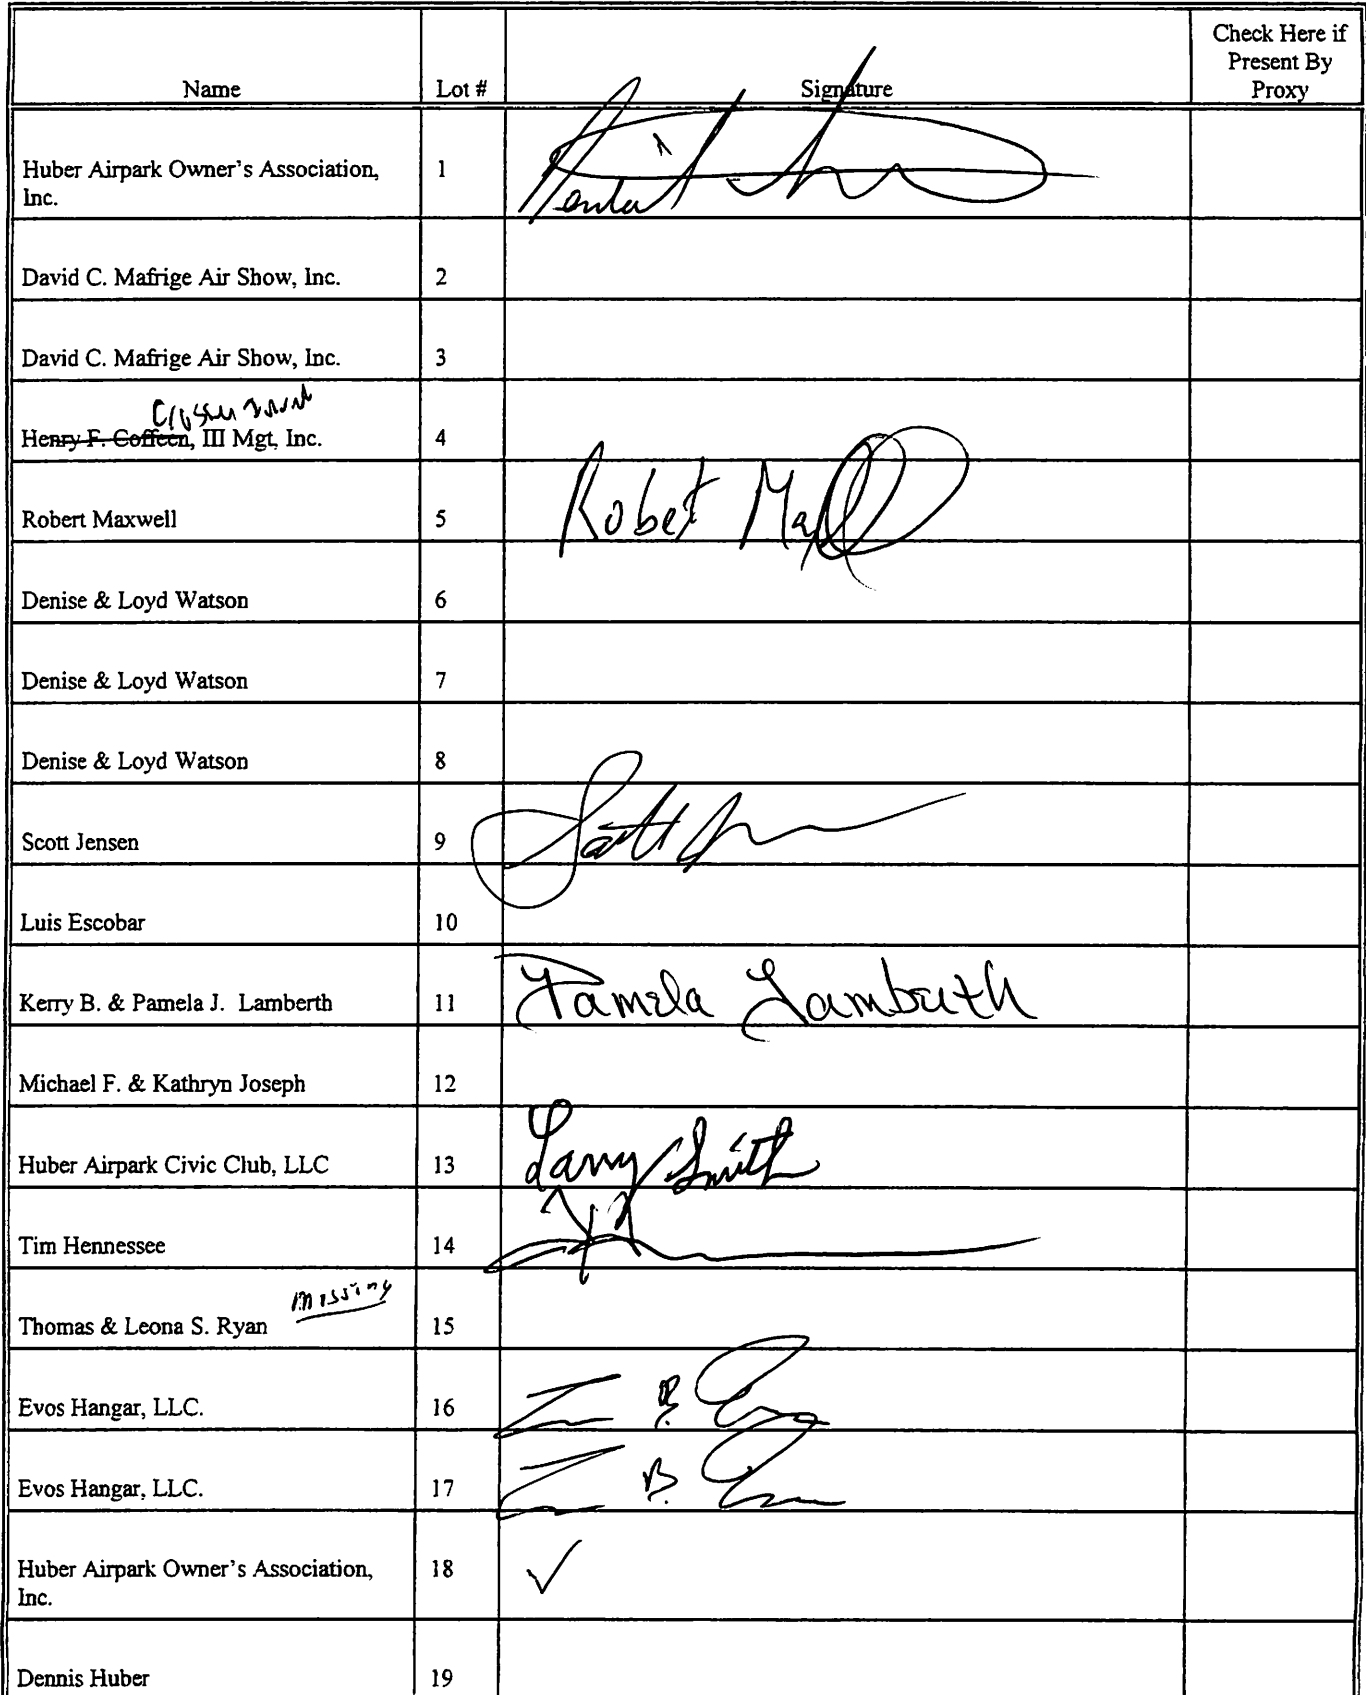 Name Lot # Signature Check Here if
Present By
Proxy
Huber Airpark Owner's Association,
Inc. 1
David C. Mafrige Air Show, Inc. 2
David C. Mafrige Air Show, Inc. 3
Henry F. Coffeen, III Mgt, Inc. 4
Robert Maxwell 5 Robert
Denise & Loyd Watson 6
Denise & Loyd Watson 7
Denise & Loyd Watson 8
Scott Jensen 9 Scott
Luis Escobar 10
Kerry B. & Pamela J. Lamberth 11 Pamela Lamberth
Michael F. & Kathryn Joseph 12
Huber Airpark Civic Club, LLC 13 Larry Smith
Tim Hennessee 14
missing
Thomas & Leona S. Ryan 15
Evos Hangar, LLC. 16
Evos Hangar, LLC. 17
Huber Airpark Owner's Association,
Inc. 18 ✓
Dennis Huber 19